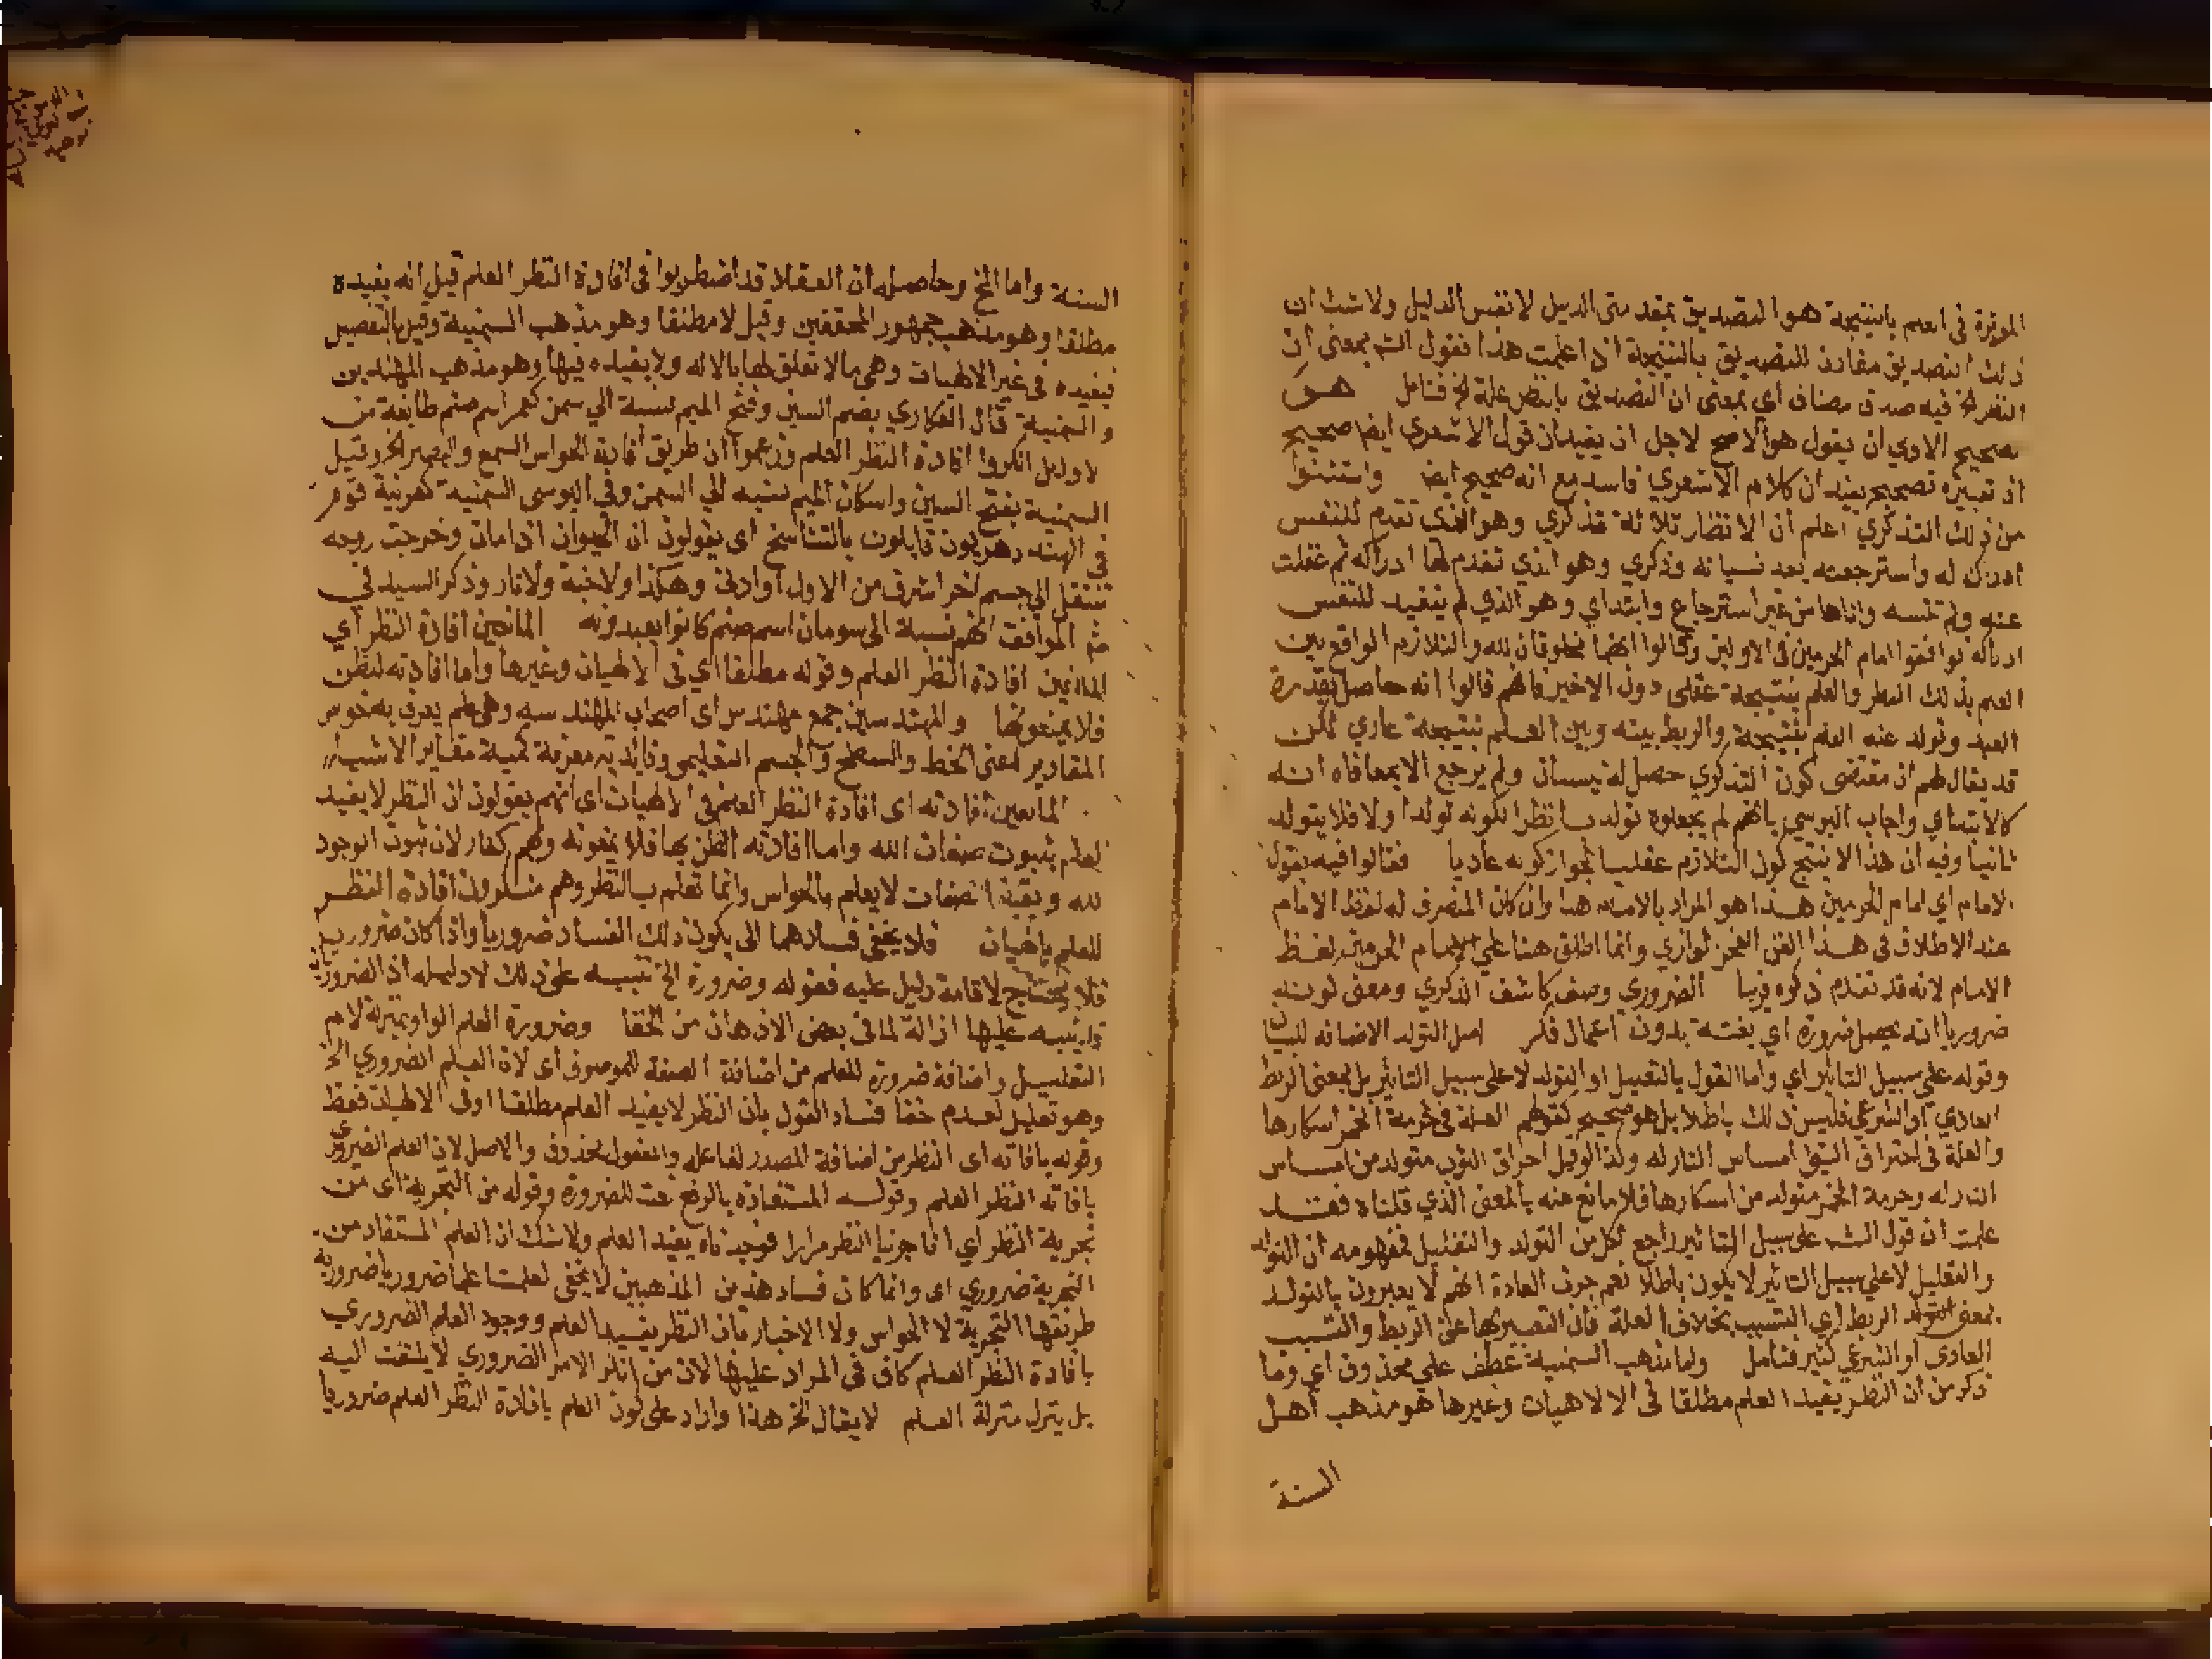 المؤثرة في العلم بالنتيجة هو التصديق بمقدمتي الدليل لا نفس الدليل ولا شك ان
ذلك التصديق مقارن للتصديق بالنتيجة اذا علمت هذا نقول الش بمعنى ان
النظر الخ فيه حذف مضاف أي بمعنى ان التصديق بالنظر علة الخ فتامل هو
صحيح الاولي ان يقول هو الاصح لاجل ان يفيد ان قول الاشعري ايضا صحيح
اذ تعبيره بصحيح يفيد ان كلام الاشعري فاسد مع انه صحيح ايضا واستثنوا
من ذلك التذكري اعلم ان الانظار ثلاثة تذكري وهو الذي تقدم للنفس
ادراك له واسترجعته بعد نسيانه وذكري وهو الذي تقدم لها ادراكه ثم غفلت
عنه ولم تنسه واتاها من غير استرجاع وابتداي وهو الذي لم يتقدم للنفس
ادراكه فوافقوا امام الحرمين في الاولين وقالوا انهما مخلوقان لله والتلازم الواقع بين
العلم بذلك النظر والعلم بنتيجة عقلي دون الاخير فانهم قالوا انه حاصل بقدرة
العبد وتولد عنه العلم بنتيجة والربط بينه وبين العلم بنتيجة عادي لكن
قد يقال لهم ان مقتضى كون التذكري حصل له نسيان ولم يرجع الا بمعاناه انه
كالابتداي واجاب اليوسي بانهم لم يجعلوه تولد نظرا لكونه تولد اولا فلا يتولد
ثانيا وفيه ان هذا لا ينتج كون التلازم عقليا لجواز كونه عاديا فقالوا فيه بقول
الامام اي امام الحرمين هذا هو المراد بالامام هنا وان كان المنصرف له لفظ الامام
عند الاطلاق في هذا الفن الفخر الرازي وانما اطلق هنا علي امام الحرمين لفظ
الامام لانه قد تقدم ذكره قريبا الضروري وصف كاشف الذكري ومعنى كونه
ضروريا انه يحصل ضرورة اي بغتة بدون اعمال فكر اصل التولد الاضافه للبيان
وقوله علي سبيل التاثير اي واما القول بالتعليل او التولد لا على سبيل التاثير بل بمعنى الربط
العادي او الشرعي فليس ذلك باطلا بل هو صحيح كقولهم العلة في حرمة الخمر اسكارها
والعلة في احتراق الشئ امساس النار له ولذا لو قيل احراق الثوب متولد من امساس
النار له وحرمة الخمر متولد من اسكارها فلا مانع منه بالمعنى الذي قلناه فقد
علمت ان قول الش على سبيل التاثير راجع لكل من التولد والتعليل فمفهومه ان التولد
والتعليل لا علي سبيل التاثير لا يكون باطلا نعم جرت العادة انهم لا يعبرون بالتولد
بمعنى الربط اي التسبب بخلاف العلة فان التعبير بها على الربط والتسبب
العادي او الشرعي كثير فتامل واما مذهب السمنية عطف علي محذوف اي وما
ذكر من ان النظر يفيد العلم مطلقا في الالاهيات وغيرها هو مذهب اهل
السنة
السنة واما الخ وحاصله ان العقلا قد اضطربوا في افادة النظر العلم قيل انه يفيده
مطلقا وهو مذهب جمهور المحققين وقيل لا مطلقا وهو مذهب السمنية وقيل بالتفصيل
فيفيده في غير الالهيات وهي مالا تعلق لها بالاله ولا يفيده فيها وهو مذهب المهندسين
والسمنية قال العكاري بضم السين وفتح الميم نسبة الي سمن كعمر اسم صنم طايفة من
الاوايل انكروا افادة النظر العلم وزعموا ان طريق افادته الحواس السمع والبصر الخ وقيل
السمنية بفتح السين واسكان الميم نسبه الي السمن وفي اليوسي السمنية كعرنية قوم
في الهند دهريون قايلون بالتناسخ اي يقولون ان الحيوان اذا مات وخرجت روحه
تنتقل الي جسم اخر اشرف من الاول او ادنى وهكذا ولا جنة ولا نار وذكر السيد في
شرح المواقف انهم نسبة الى سومان اسم صنم كانوا يعبدونه المانعين افادة النظر اي
المانعين افادة النظر العلم وقوله مطلقا اي في الالهيات وغيرها واما افادته للظن
فلا يمنعونها والمهندسين جمع مهندس اي اصحاب الهندسه وهي علم يعرف به خواص
المقادير اعنى الخط والسطح والجسم التعليمي وفايدته معرفة كمية مقادير الاشيا
المانعين افادته اي افادة النظر العلم في الالهيات اي انهم يقولون ان النظر لا يفيد
العلم بثبوت صفات الله واما افادته الظن بها فلا يمنعونه وهم كفار لان ثبوت الوجود
لله وبقية الصفات لا يعلم بالحواس وانما تعلم بالنظر وهم منكرون افادة النظر
للعلم بالالهيات فلا يخفى فسادهما الى بكون ذلك الفساد ضروريا واذا كان ضروريا
فلا يحتاج لاقامة دليل عليه فقوله وضرورة الخ تنبيه على ذلك لا دليل له اذ الضروريات
قد ينبه عليها ازالة لما في بعض الاذهان من الخفا وضرورة العلم الواو بمنزلة لام
التعليل واضافة ضرورة للعلم من اضافة الصفة للموصوف اي لان العلم الضروري الخ
وهو تعليل لعدم خفا فساد القول بان النظر لا يفيد العلم مطلقا او في الالهيات فقط
وقوله بافادته اي النظر من اضافة المصدر لفاعله والمفعول محذوف والاصل لان العلم الضروري
بافادته النظر العلم وقوله المستفادة بالرفع نعت للضرورة وقوله من التجربة اي من
تجربة النظر اي انا جربنا النظر مرارا فوجدناه يفيد العلم ولا شك ان العلم المستفاد من
التجربة ضروري اي وانما كان فساد هذين المذهبين لا يخفى لعلمنا علما ضروريا ضرورية
طريقها التجربة لا الحواس ولا الاخبار بان النظر يفيد العلم ووجود العلم الضروري
بافادة النظر العلم كاف في المراد عليها لان من انكر الامر الضروري لا يلتفت اليه
بل ينزل منزلة العلم لا يقال الخ هذا وارد على كون العلم بافادة النظر العلم ضروريا